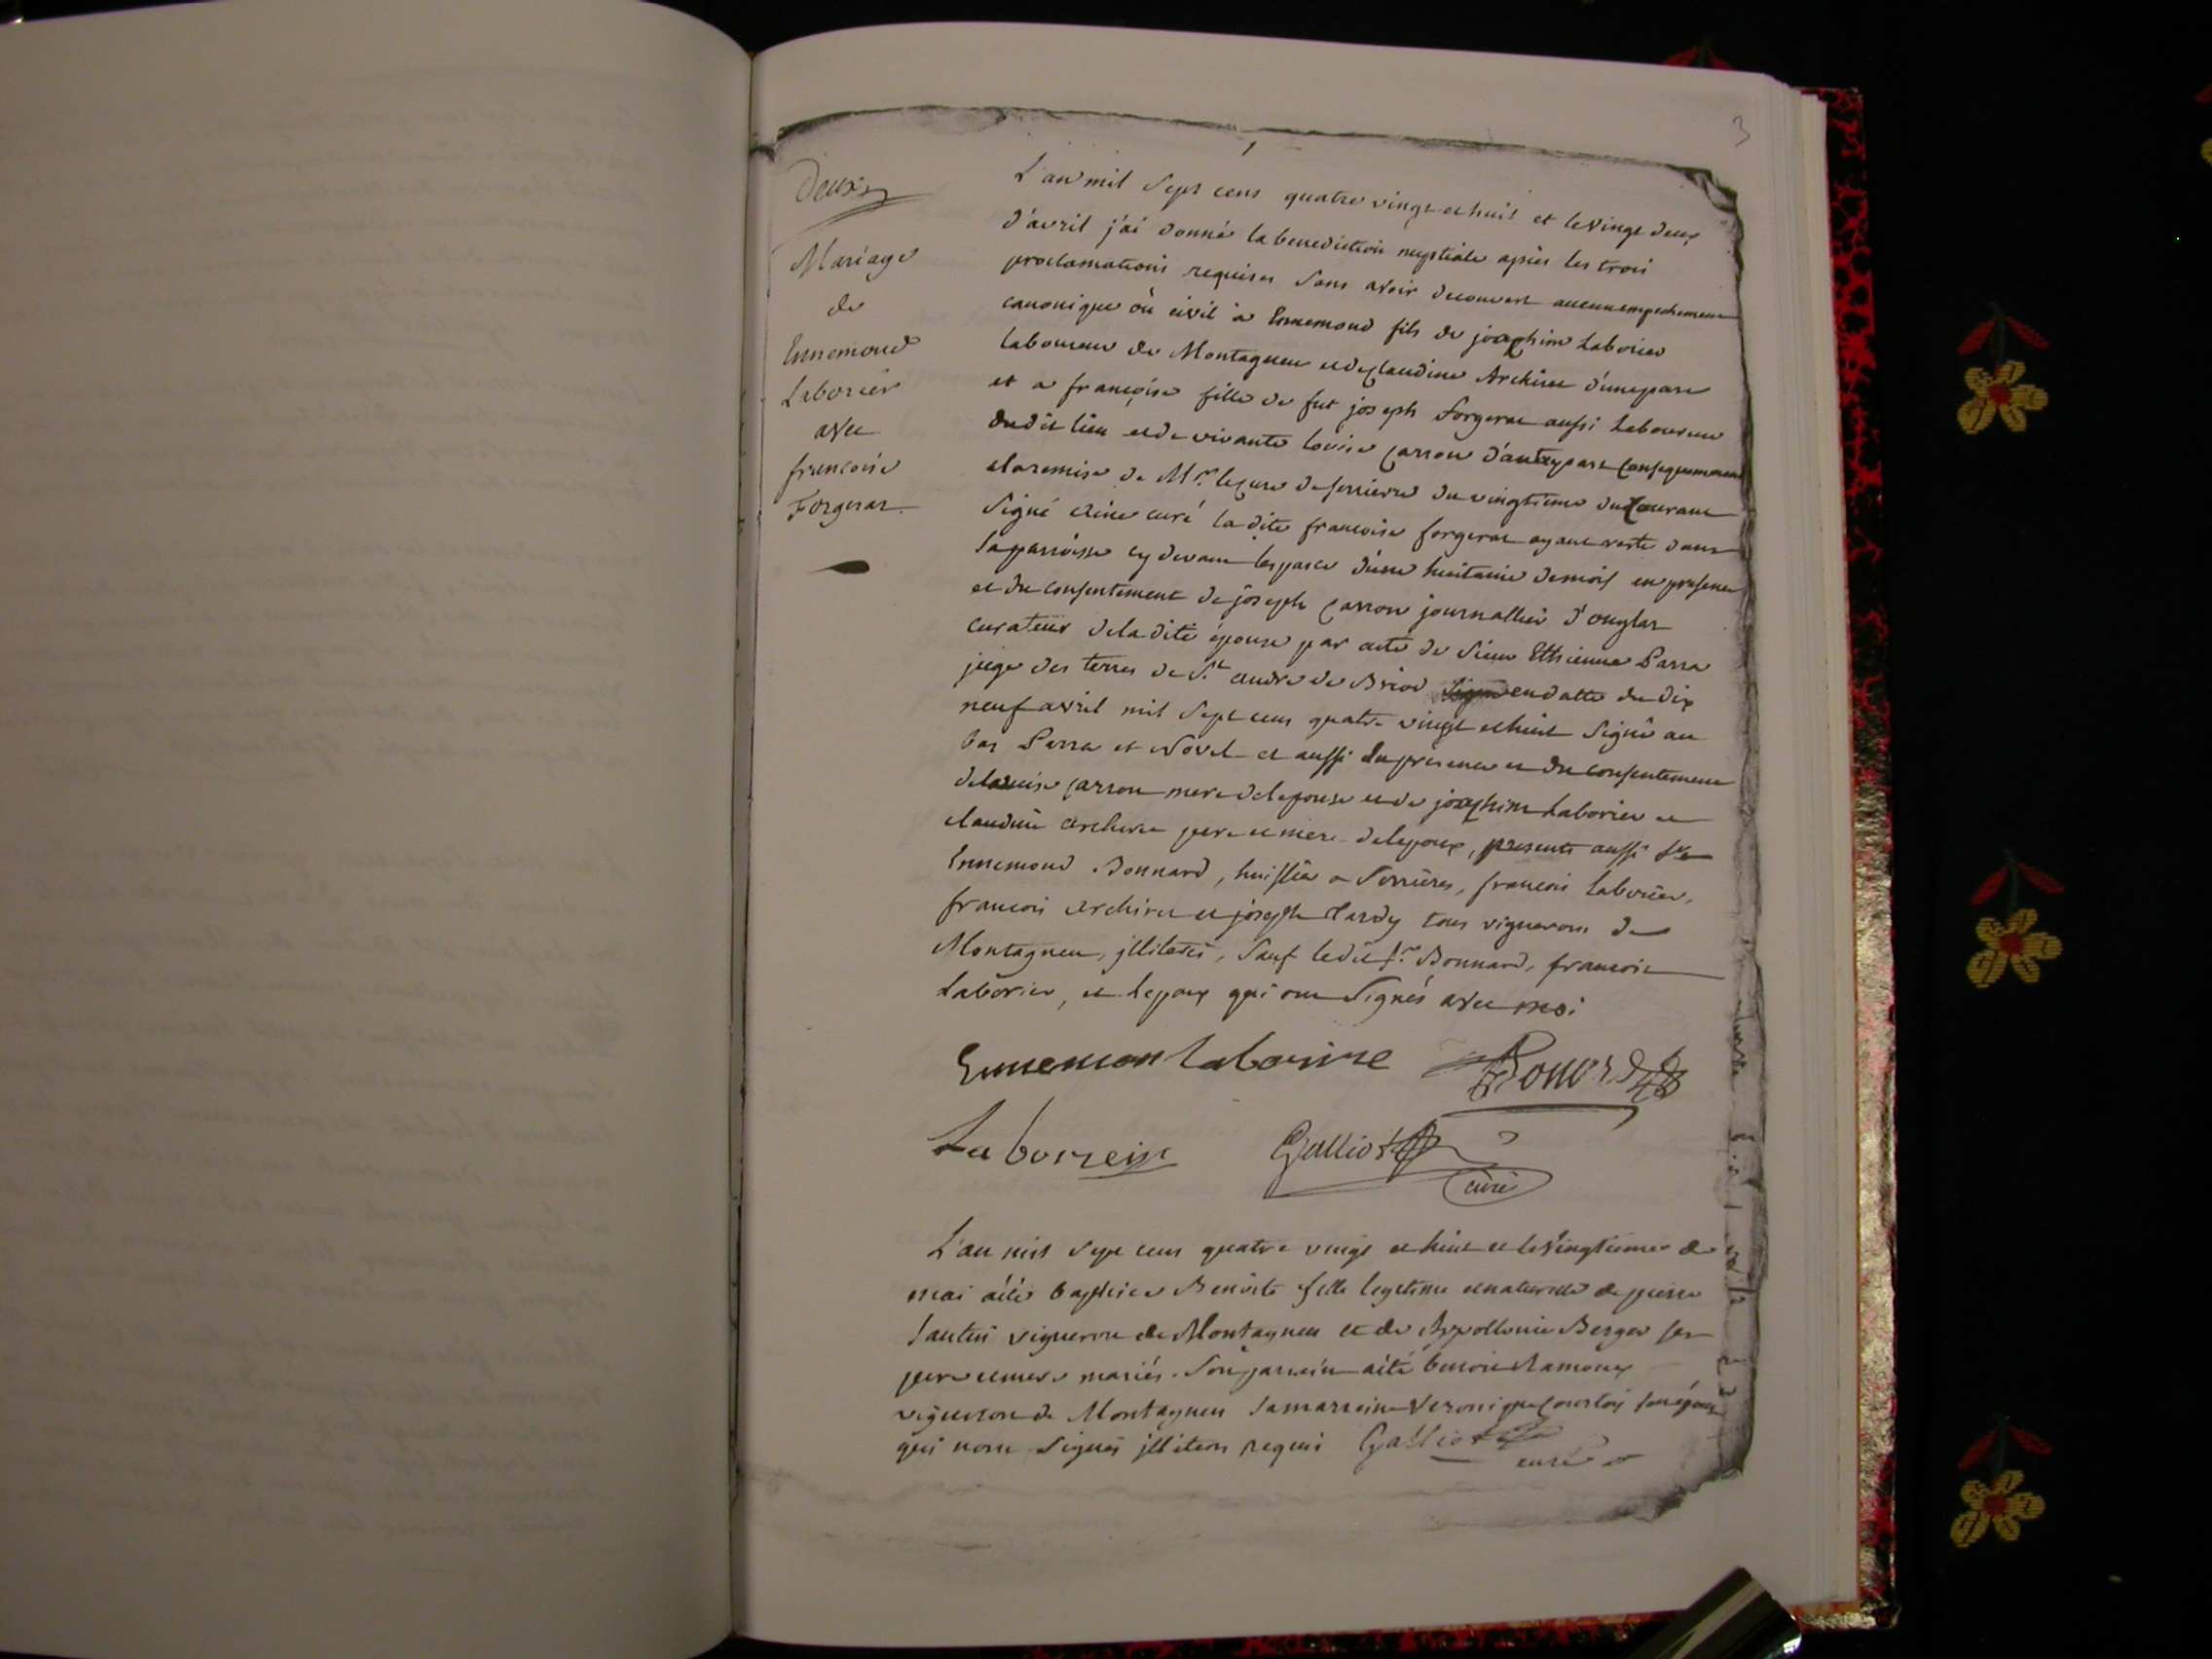 3
Deux
Mariage
de
Ennemond
Laborier
avec
francoise
Forgerat
L'an mil sept cens quatre vingt et huit et le vingt deux
d'avril j'ai donné la benediction nuptiale après les trois
proclamations requises sans avoir decouvert aucun empechement
canonique où civil à Ennemond fils de joachim Laborier
laboureur de Montagneu et de claudine Archirel d'une part
et a françoise fille de fut joseph forgerat aussi laboureur
dudit lieu et de vivante Louise carron d'autre part consequemment
a la remise de Mr. le curé de serrieres du vingtieme du courant
signé curé la dite francoise forgerat ayant resté dans
sa parroisse cy devant l'espace d'une huitaine de mois en presence
et du consentement de joseph carron journallier d'
curateur de la dite épouse par acte de sieur Ethienne Parra
juge des terres de St. andré de Briod en datte du dix
neuf avril mil sept cens quatre vingt et huit signé au
bas Parra et Novel et aussi du presence et du consentement
de Louise carron mere de lepouse et de joachim Laborier et
claudine archirel pere et mere de lepoux, presents aussi sr
Ennemond Bonnard, huissier a Serrières, francois Laborier,
francois archirel et joseph tardy tous vignerons de
Montagneu, jlliterés, sauf ledit sr. Bonnard, francois
Laborier, et lepoux qui ont signés avec moi
Ennemon laborire Bonard
Laborein Galliot
curé
L'an mil sept cens quatre vingt et huit et le vingtieme de
mai a été baptisée Benoite fille legitime et naturelle de pierre
vigneron de Montagneu et de Appollonie Berger ses
pere et mere mariés. Son parrein a été benoit Ramoux
vigneron de Montagneu sa marreine Veronique courtois
qui nont signés jlliteres requis Galliot
curé